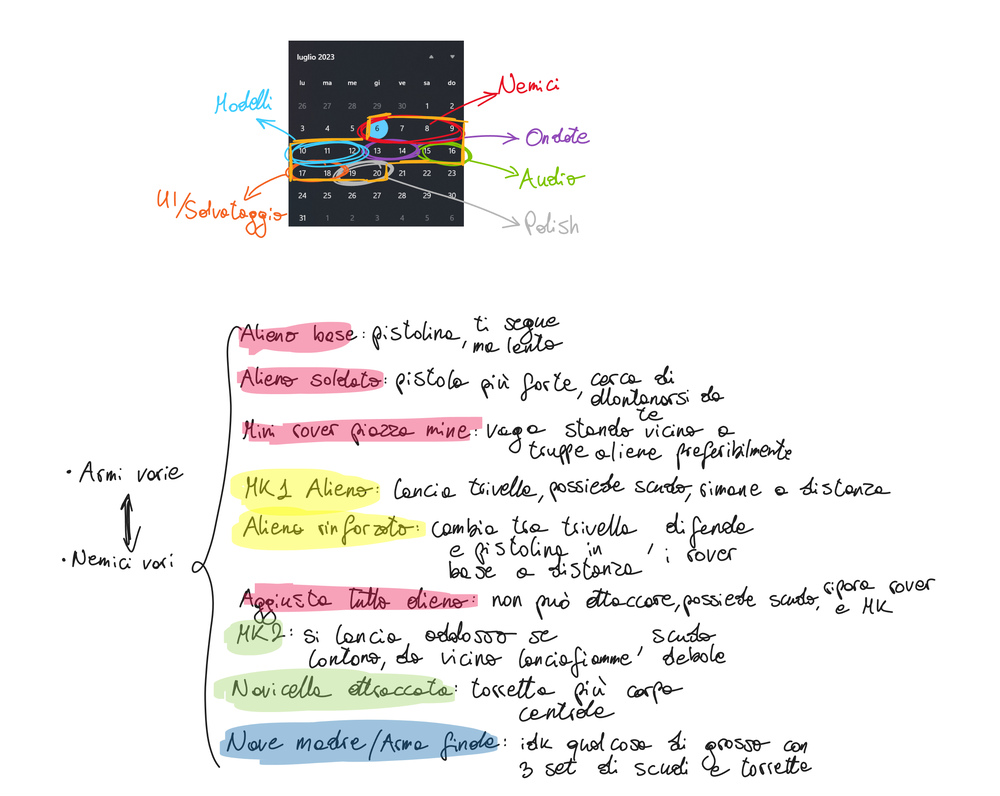 luglio 2023
lu ma me gi ve sa do
26 27 28 29 30 1 2
3 4 5 6 7 8 9
10 11 12 13 14 15 16
17 18 19 20 21 22 23
24 25 26 27 28 29 30
31 1 2 3 4 5 6
Modelli
Nemici
Ondate
Audio
UI/Salvataggio
Polish
Alieno base: pistolina, ti segue
ma lento
Alieno soldato: pistola più forte, cerca di
allontanarsi da
te
Mini rover piazza mine: vaga stando vicino a
truppe aliene preferibilmente
· Armi varie
· Nemici vari
MK1 Alieno: lancia trivella, possiede scudo, rimane a distanza
Alieno rinforzato: cambia tra trivella
e pistolina in
base a distanza, difende
i rover
Aggiusta tutto alieno: non può attaccare, possiede scudo, ripara rover
e MK
MK2: si lancia addosso se
lontano, da vicino lanciafiamme, scudo
debole
Navicella attraccata: torretta più corpo
centrale
Nave madre/Arma finale: idk qualcosa di grosso con
3 set di scudi e torrette